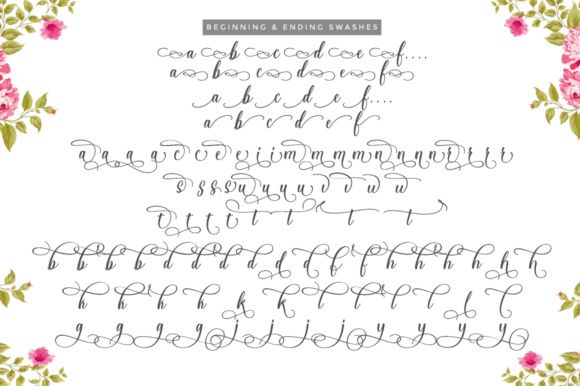 BEGINNING & ENDING SWASHES
a b c d e f....
a b c d e f
a b c d e f....
a b c d e f
a a a a c c e e i i m m m m n n n r r r r
s s s s u u u u v v w w
t t t t t t t t
b b b b d d d d d d f f h h h h h h
h h h h k k l l l l l l
g g g g j j j j j y y y y y